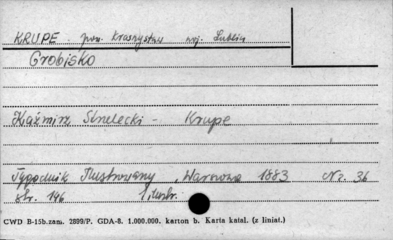 KRUPE - pow. Krasnystaw woj. Lublin
Grobisko
Kaźmirz Strzelecki - Krupe
Tygodnik Ilustrowany, Warszawa 1883 Nr. 36
str. 146 1 ilustr.
CWD B-15b.zam. 2899/P. GDA-8. 1.000.000. karton b. Karta katal. (z liniat.)